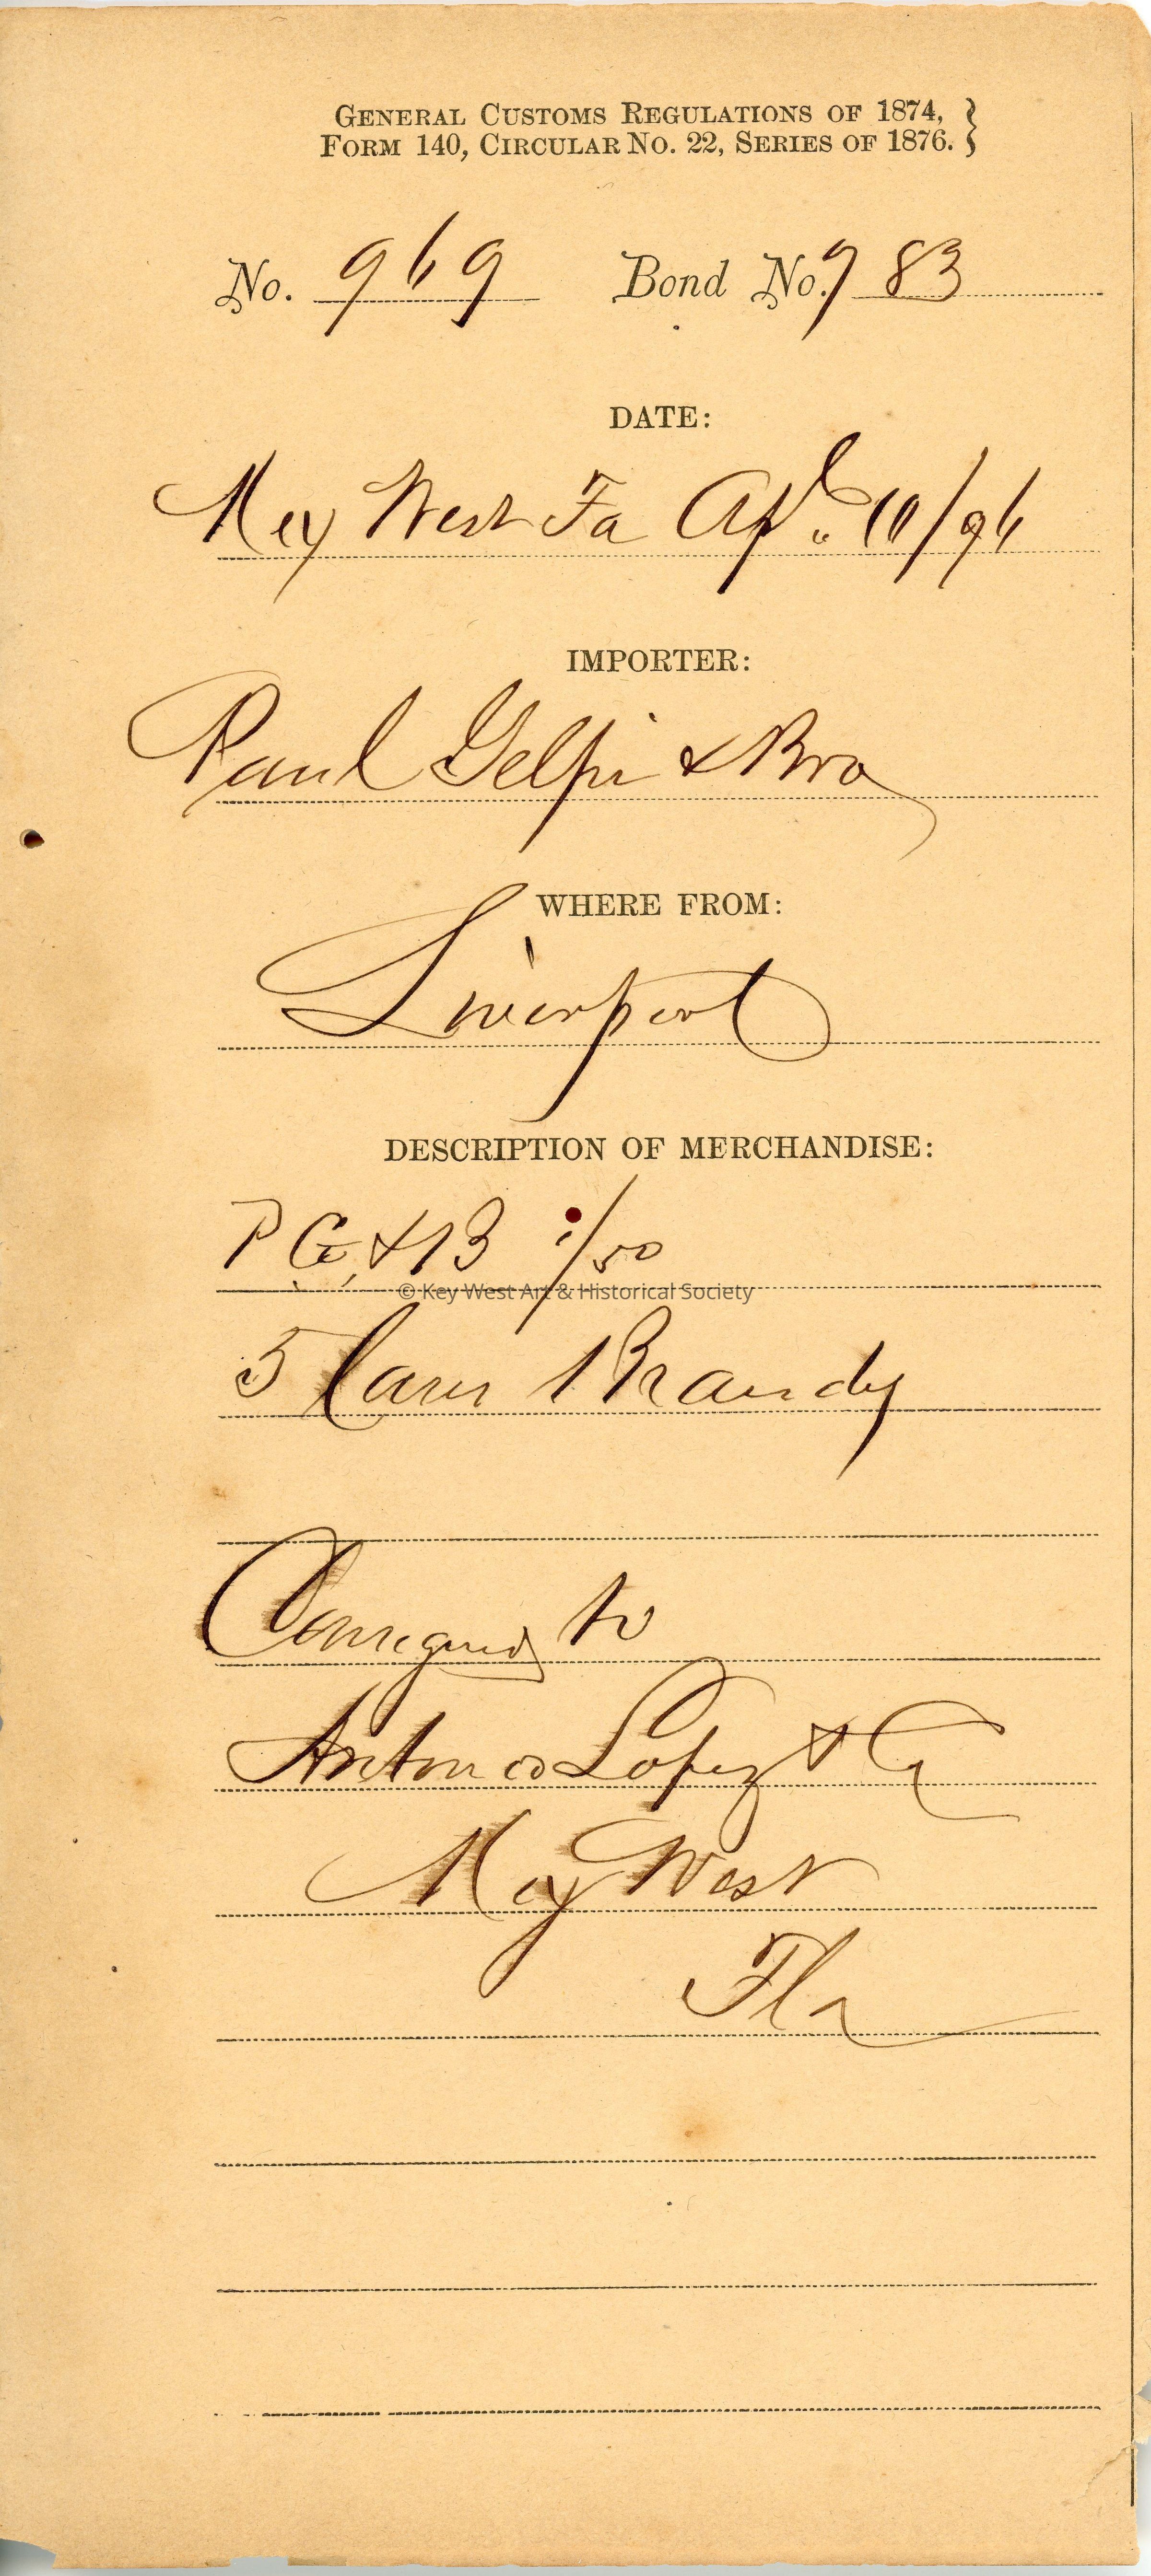 GENERAL CUSTOMS REGULATIONS OF 1874,
FORM 140, CIRCULAR No. 22, SERIES OF 1876. }
No. 969 Bond No. 983
DATE:
Key West Fa Apl. 10/96
IMPORTER:
Paul Gelpi & Bro
WHERE FROM:
Liverpool
DESCRIPTION OF MERCHANDISE:
P G & B 1/50
© Key West Art & Historical Society
5 Cases Brandy
Consigned to
Antonio Lopez & Co
Key West
Fla